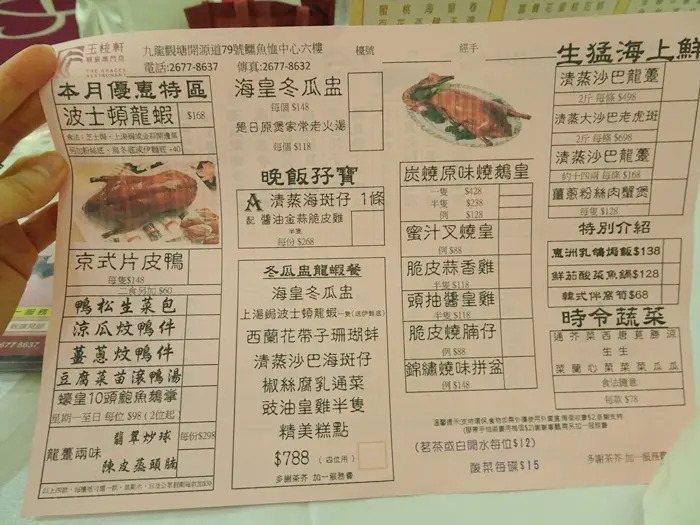 玉桃軒
THE GRACES
RESTAURANT
九龍觀塘開源道79號鱷魚恤中心六樓
電話:2677-8637 傳真:2677-8632
檯號
經手
本月優惠特區
波士頓龍蝦 $168
京式片皮鴨
每隻$148
二食另加 $60
鴨松生菜包
涼瓜炆鴨件
薑蔥炆鴨件
豆腐菜苗滾鴨湯
蠔皇10頭鮑魚鵝掌
星期一至日 每位 $98 (2位起)
龍躉兩味
翡翠炒球
陳皮蒸頭腩
每份$298
海皇冬瓜盅
每個 $148
是日原煲家常老火湯
每個 $118
晚飯孖寶
A 清蒸海斑仔 1條
配 醬油金蒜脆皮雞
半隻
每份 $268
冬瓜盅龍蝦餐
海皇冬瓜盅
上湯焗波士頓龍蝦一隻(送伊麵底)
西蘭花帶子珊瑚蚌
清蒸沙巴海斑仔
椒絲腐乳通菜
豉油皇雞半隻
精美糕點
$788 (四位用)
多謝茶芥 加一服務費
炭燒原味燒鵝皇
一隻 $428
半隻 $238
例 $128
蜜汁叉燒皇
例 $88
脆皮蒜香雞
半隻 $118
頭抽醬皇雞
半隻 $118
脆皮燒腩仔
例 $88
錦繡燒味拼盆
例 $148
生猛海上鮮
清蒸沙巴龍躉
2斤 每條 $498
清蒸大沙巴老虎斑
2斤 每條 $698
清蒸沙巴龍躉
約十四兩 每條 $168
薑蔥粉絲肉蟹煲
每隻 $128
特別介紹
惠洲乳鴿焗飯$138
鮮茄酸菜魚鍋$128
韓式伴窩筍$68
時令蔬菜
通芥菜西唐莧勝流
生生
菜蘭心菜菜菜瓜瓜
食法隨意
每款 $78
(茗茶或白開水每位$12)
酸菜每碟$15
多謝茶芥 加一服務費
2677-8637